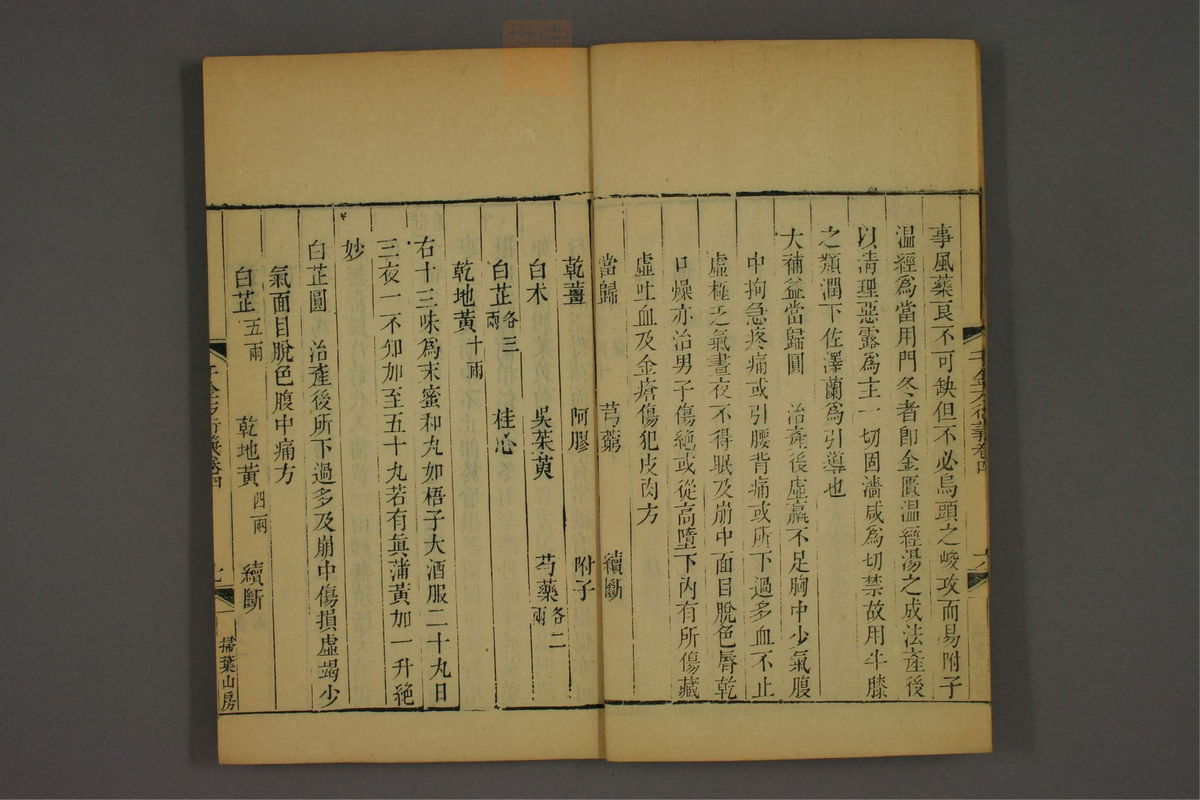 事風藥良不可缺但不必烏頭之峻攻而易附子
溫經爲當用門冬者卽金匱溫經湯之成法產後
以淸理惡露爲主一切固濇咸爲切禁故用牛膝
之類潤下佐澤蘭爲引導也
大補益當歸圓 治產後虛羸不足胸中少氣腹
中拘急疼痛或引腰背痛或所下過多血不止
虛極乏氣晝夜不得眠及崩中面目脫色脣乾
口燥亦治男子傷絕或從高墮下內有所傷藏
虛吐血及金瘡傷犯皮肉方
當歸 芎藭 續斷
乾薑 阿膠 附子
白朮 吳茱萸 芍藥各二兩
白芷各三兩 桂心
乾地黃十兩
右十三味爲末蜜和丸如梧子大酒服二十丸日
三夜一不知加至五十丸若有眞蒲黃加一升絕
妙
白芷圓 治產後所下過多及崩中傷損虛竭少
氣面目脫色腹中痛方
白芷五兩 乾地黃四兩 續斷
千金方衍義卷四
掃葉山房